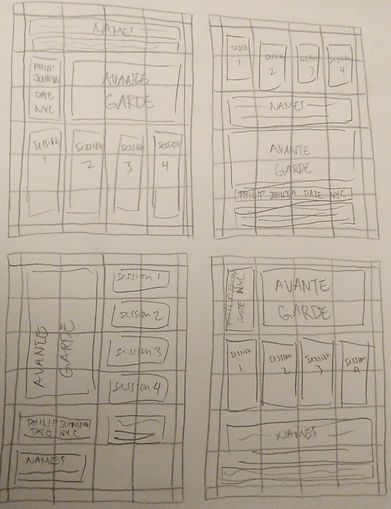 NAMES
PHILIP
JOHNSON
DATE
NYC
AVANTE
GARDE
SESSION
1
SESSION
2
SESSION
3
SESSION
4
SESSION
1
SESSION
2
SESSION
3
SESSION
4
NAMES
AVANTE
GARDE
PHILIP JOHNSON DATE NYC
AVANTE
GARDE
SESSION 1
SESSION 2
SESSION 3
SESSION 4
PHILIP JOHNSON
DATE NYC
NAMES
DATE NYC
AVANTE
GARDE
SESSION
1
SESSION
2
SESSION
3
SESSION
4
NAMES